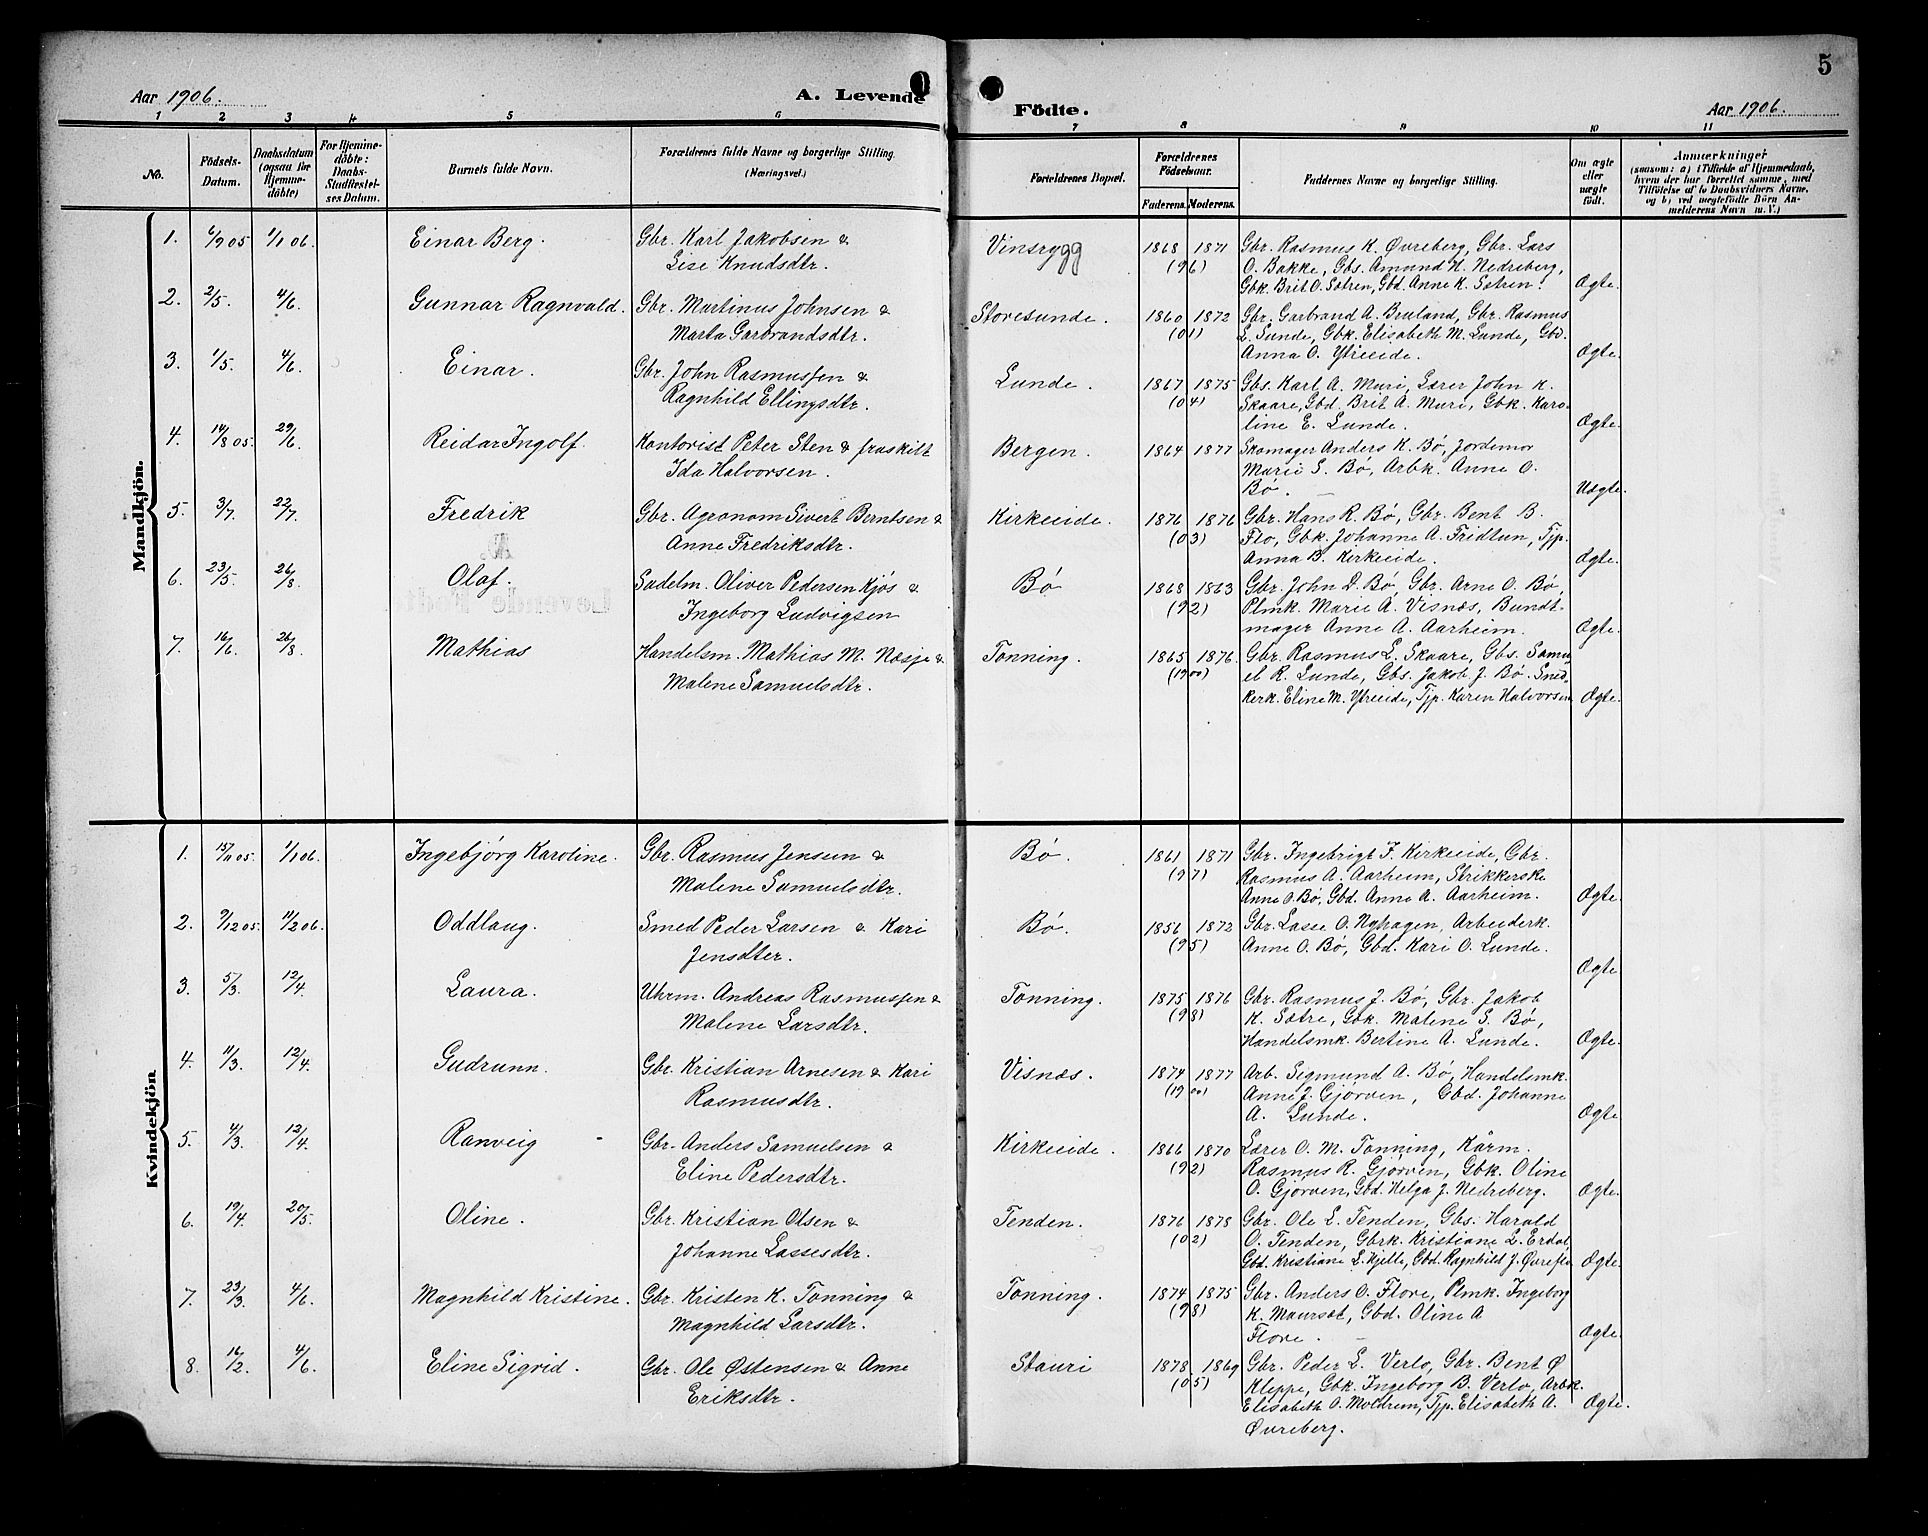 5
Aar 1906.
A. Levende
Födte.
Aar 1906.
1 2 3 4 5 6 7 8 9 10 11
No.
Födsels-Datum.
Daabsdatum (ogsaa for Hjemme-döbte)
For Hjemme-döbte: Daabs-Stadfæstel-ses Datum.
Barnets fulde Navn.
Forældrenes fulde Navne og borgerlige Stilling.
(Næringsvei.)
Forældrenes Bopæl.
Forældrenes Födselsaar.
Faderens. Moderens.
Faddernes Navne og borgerlige Stilling.
Om ægte eller uægte födt.
Anmærkninger
(saasom: a) i Tilfælde af Hjemmedaab,
hvem der har forrettet samme, med
Tilföielse af to Daabsvidners Navne,
og b) ved uægtefödte Börn An-
melderens Navn m. V.)
Mandkjön.
1. 6/9 05 1/1 06. Einar Berg. Gbr. Karl Jakobsen & Vinsrygg 1868 1871 Gbr. Rasmus K. Øvreberg, Gbr. Lars
Lise Knudsdtr. (96) O. Bakke, Gbs. Amund H. Nedreberg,
Gbk. Brit O. Sætren, Gbd. Anne K. Sætren. Ægte.
2. 2/5. 4/6. Gunnar Ragnvald. Gbr. Martinus Johnsen & Storesunde. 1860 1872 Gbr. Garbrand A. Bruland, Gbr. Rasmus
Marta Garbrandsdtr. (01) L. Sunde, Gbk. Elisabeth M. Lunde, Gbd.
Anna O. Ytreeide. Ægte.
3. 1/5. 4/6. Einar. Gbr. John Rasmussen & Lunde. 1867 1875 Gbs. Karl A. Muri, Lærer John K.
Ragnhild Ellingsdtr. (04) Skaare, Gbd. Brit A. Muri, Gbk. Karo-
line E. Lunde. Ægte.
4. 14/8 05. 29/6. Reidar Ingolf. Kontorist Peter Sten & fraskilt Bergen. 1864 1877 Skomager Anders K. Bø, Jordemor
Ida Halvorsen. Marie S. Bø, Arbk. Anne O.
Bø. Uægte.
5. 3/7. 22/7. Fredrik Gbr. Agronom Sivert Berntsen & Kirkeeide. 1876 1876 Gbr. Hans R. Bø, Gbr. Bent B.
Anne Fredriksdtr. (03) Flo, Gbk. Johanne A. Fridtun, Tjp.
Anna B. Kirkeeide. Ægte.
6. 23/5. 26/8. Olaf. Sadelm. Oliver Pedersen Kjøs & Bø 1868 1863 Gbr. John D. Bø, Gbr. Arne O. Bø,
Ingeborg Ludvigsen (92) Plmk. Marie A. Visnæs, Bundt-
mager Anne A. Aarheim. Ægte.
7. 16/6. 26/8. Mathias Handelsm. Mathias M. Næsje & Tonning. 1865 1876. Gbr. Rasmus L. Skaare, Gbs. Samu-
Malene Samuelsdtr. (1900) el R. Lunde, Gbs. Jakob J. Bø. Sned-
kerk. Eline M. Ytreeide, Tjp. Karen Halvorsen. Ægte.
Kvindekjön
1. 15/11 05. 1/1 06. Ingebjörg Karoline. Gbr. Rasmus Jensen & Bø. 1861 1871 Gbr. Ingebrigt F. Kirkeeide, Gbr.
Malene Samuelsdtr. (97) Rasmus A. Aarheim, Strikkerske
Anne O. Bø, Gbd. Anne A. Aarheim. Ægte.
2. 9/12 05. 11/2 06. Oddlaug. Smed Peder Larsen & Kari Bø. 1856 1872 Gbr. Lasse O. Nyhagen, Arbeiderk.
Jensdtter. (95) Anne O. Bø, Gbd. Kari O. Lunde.
Ægte
3. 5/3. 12/4. Laura. Uhrm. Andreas Rasmussen & Tonning. 1875 1876 Gbr. Rasmus J. Bø, Gbr. Jakob
Malene Larsdtr. (98) K. Sætre, Gbk. Malene S. Bø,
Handelsmk. Bertine A. Lunde. Ægte.
4. 11/3. 12/4. Gudrunn. Gbr. Kristian Arnesen & Kari Visnæs. 1874 1877 Arb. Sigmund A. Bø, Handelsmk.
Rasmusdtr. (1900) Anne J. Gjørven, Gbd. Johanne
A. Lunde. Ægte.
5. 4/3. 12/4. Ranveig Gbr. Anders Samuelsen & Kirkeeide. 1866 1870 Lærer O. M. Tonning, Kårm.
Eline Pedersdtr. (92) Rasmus R. Gjørven, Gbk. Oline
O. Gjørven, Gbd. Helga J. Nedreberg. Ægte.
6. 19/4. 20/5. Oline. Gbr. Kristian Olsen & Tenden. 1876 1878 Gbr. Ole L. Tenden, Gbs. Harald
Johanne Lassesdtr. (02) O. Tenden, Gbrk. Kristiane L. Erdal,
Gbd. Kristiane L. Hjelle, Gbd. Ragnhild J. Øvreflo Ægte.
7. 23/3. 4/6. Magnhild Kristine. Gbr. Kristen K. Tonning & Tonning. 1874 1875 Gbr. Anders O. Flore, Plmk. Ingeborg
Magnhild Larsdtr. (98) K. Maurset, Gbd. Oline A
Flore. Ægte.
8. 16/2. 4/6. Eline Sigrid. Gbr. Ole Østensen & Anne Stauri 1878. 1869 Gbr. Peder L. Verlo, Gbr. Bent Ø
Eriksdtr. (05) Kleppe, Gbk. Ingeborg B. Verlo, Arbk.
Elisabeth O. Moldreim, Tjp. Elisabeth A. Ægte.
Øvreberg.